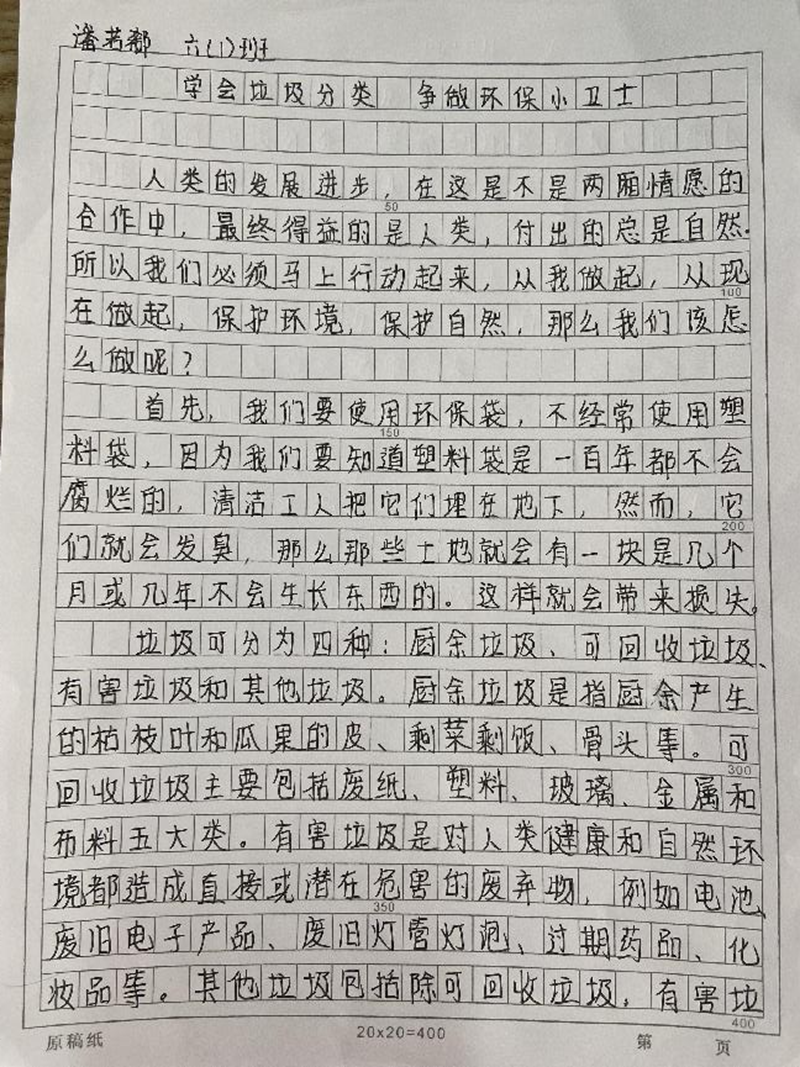 潘若郗 六(1)班
学会垃圾分类 争做环保小卫士
人类的发展进步,在这是不是两厢情愿的
50
合作中,最终得益的是人类,付出的总是自然.
所以我们必须马上行动起来,从我做起,从现
100
在做起,保护环境,保护自然,那么我们该怎
么做呢?
首先,我们要使用环保袋,不经常使用塑
150
料袋,因为我们要知道塑料袋是一百年都不会
腐烂的,清洁工人把它们埋在地下,然而,它
200
们就会发臭,那么那些土地就会有一块是几个
月或几年不会生长东西的。这样就会带来损失。
垃圾可分为四种:厨余垃圾、可回收垃圾、
有害垃圾和其他垃圾。厨余垃圾是指厨余产生
的枯枝叶和瓜果的皮、剩菜剩饭、骨头等。可
300
回收垃圾主要包括废纸、塑料、玻璃、金属和
布料五大类。有害垃圾是对人类健康和自然环
境都造成直接或潜在危害的废弃物,例如电池、
350
废旧电子产品、废旧灯管灯泡、过期药品、化
妆品等。其他垃圾包括除可回收垃圾,有害垃
400
原稿纸 20x20=400 第 页